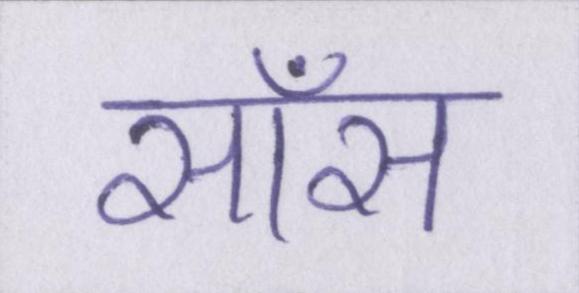 साँस